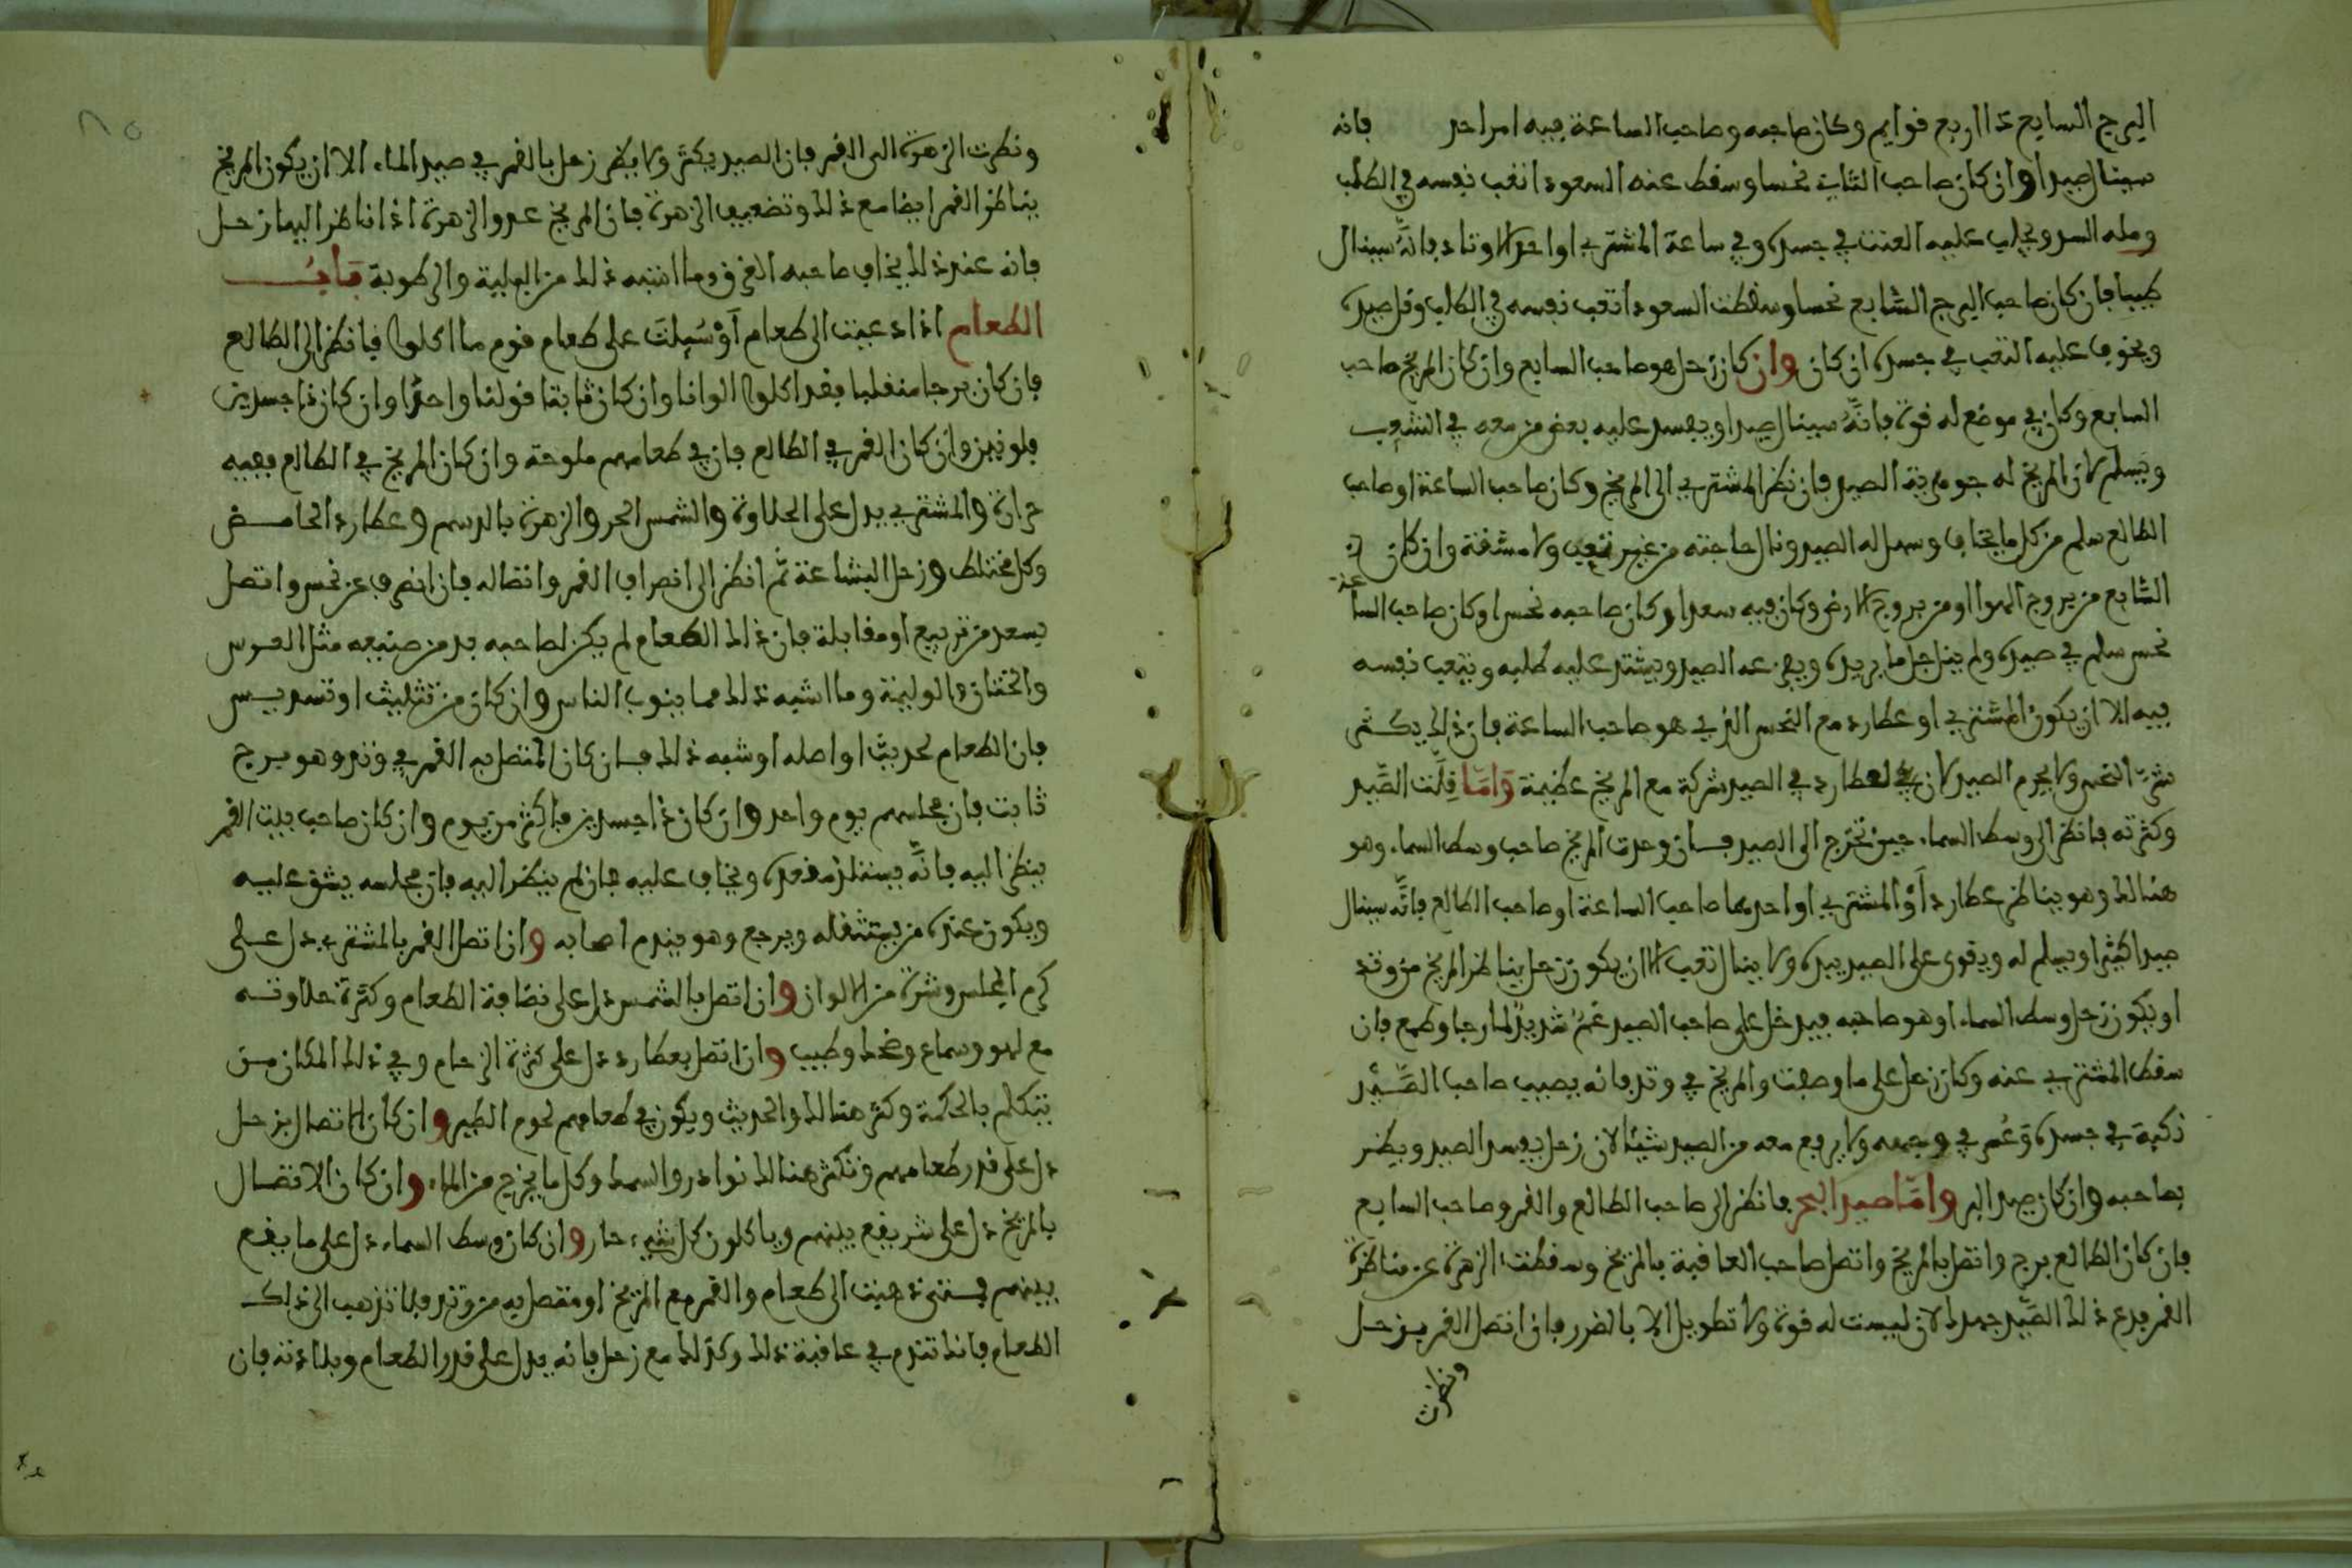 البرج السابع ذا اربع قوايم وكان صاحبه وصاحب الساعة فيه امر احد فانه
سينال صيدا وان كان صاحب الثاني نحسا وسقط عنه السعود اتعب نفسه في الطلب
وفي ساعة المشتري او احد الاوتاد فانه سينال
طيبا فان كان صاحب البرج السابع نحسا وسقطت السعود اتعب نفسه في الطلب وقل صيده
ويخوف عليه التعب في جسده ان كان وان كان زحل هو صاحب السابع وان كان المريخ صاحب
السابع وكان في موضع له قوة فانه سينال صيدا ويفسد عليه بعض من معه في الشعب
ويسلم لان المريخ له الصيد فان نظر المشتري الى المريخ وكان صاحب الساعة او صاحب
الطالع سلم من كل ما يخاف وسهل له الصيد ونال حاجته من غير تعب ولا مشقة وان كان في
السابع من بروج الهوا او من بروج الارض وكان فيه سعدا وكان صاحبه نحسا وكان صاحب الساعة
نحس سلم في صيده ولم ينل جل ما يريده عنه الصيد ويشتد عليه طلبه ويتعب نفسه
فيه الا ان يكون المشتري او عطارد مع النحس الذي هو صاحب الساعة فان ذلك يكسر
شر النحس ولا يحرم الصيد لان لعطارد في الصيد شركة مع المريخ عظيمة واما قلت الصيد
وكثرته فانظر الى وسط السماء حين تخرج الى الصيد فان وجدت المريخ صاحب وسط السماء وهو
هنالك وهو يناظر عطارد او المشتري او احدهما صاحب الساعة او صاحب الطالع فانه سينال
صيدا كثيرا ويسلم له ويقوى على الصيد بيده ولا ينال تعب الا ان يكون زحل يناظر المريخ من وتد
او يكون زحل وسط السماء او هو صاحبه فيدخل على صاحب الصيد غم شديد لما رجا وطمع فان
سقط المشتري عنه وكان زحل على ما وصفت والمريخ في وتد فانه يصيب صاحب الصيد
نكبة في جسده وغم في وجهه ولا يرجع معه من الصيد شيئا لان زحل يفسد الصيد ويضر
بصاحبه وان كان صيد البر واما صيد البحر فانظر الى صاحب الطالع والقمر وصاحب السابع
فان كان الطالع برج واتصل بالمريخ واتصل صاحب العاقبة بالمريخ وسقطت الزهرة عن مناظرة
القمر فدع ذلك الصيد جهدك لان ليست له قوة ولا تطويل الا بالضرر فان اتصل القمر بزحل
ونظرت
ونظرت الزهرة الى القمر فان الصيد يكثر ولا يضر زحل بالقمر في صيد الماء الا ان يكون المريخ
يناظر القمر ايضا مع ذلك وتضعيف الزهرة فان المريخ عدو الزهرة اذا ناظر اليها زحل
فانه عند ذلك يخاف صاحبه الغرق وما اشبه ذلك من البلية والرطوبة باب
الطعام اذا دعيت الى طعام او سيلت على طعام قوم ما اكلوا فانظر الى الطالع
فان كان برجا منقلبا فقد اكلوا الوانا وان كان ثابتا فلونا واحدا وان كان ذا جسدين
فلونين وان كان القمر في الطالع فان في طعامهم ملوحة وان كان المريخ في الطالع ففيه
حرارة والمشتري يدل على الحلاوة والشمس الحر والزهرة بالدسم وعطارد الحامض
وكل مختلط وزحل البشاعة ثم انظر الى انصراف القمر واتصاله فان انصرف عن نحس واتصل
بسعد من تربيع او مقابلة فان ذلك الطعام لم يكن لصاحبه بد من صنيعه مثل العرس
والختان والوليمة وما اشبه ذلك مما ينوب الناس وان كان من تثليث او تسديس
فان الطعام لحديث او اصله او شبه ذلك فان كان المتصل به القمر في وتد وهو برج
ثابت فان مجلسهم يوم واحد وان كان ذا جسدين فاكثر من يوم وان كان صاحب بيت القمر
ينظر اليه فانه يستلذ مقعده ويخاف عليه فان لم ينظر اليه فان مجلسه يشق عليه
ويكون عنده من يستثقله ويرجع وهو يندم اصحابه وان اتصل القمر بالمشتري دل على
كرم المجلس وشدة من الالوان وان اتصل بالشمس دل على نضافة الطعام وكثرة حلاوته
مع لهو وسماع وضحك وطيب وان اتصل بعطارد دل على كثرة الزحام وفي ذلك المكان من
يتكلم بالحكمة وكثر هنالك والحديث ويكون في طعامهم لحوم الطير وان كان الاتصال بزحل
دل على قدر طعامهم وتكثر هنالك نوادر والسمك وكل ما يخرج من الماء وان كان الاتصال
بالمريخ دل على شر يقع بينهم وياكلون كل شيء حار وان كان وسط السماء دل على ما يقع
بينهم فمتى ذهبت الى طعام والقمر مع المريخ او متصل به من وتد فلا تذهب الى ذلك
الطعام فانك تندم في عاقبة ذلك وكذلك مع زحل فانه يدل على قدر الطعام فان